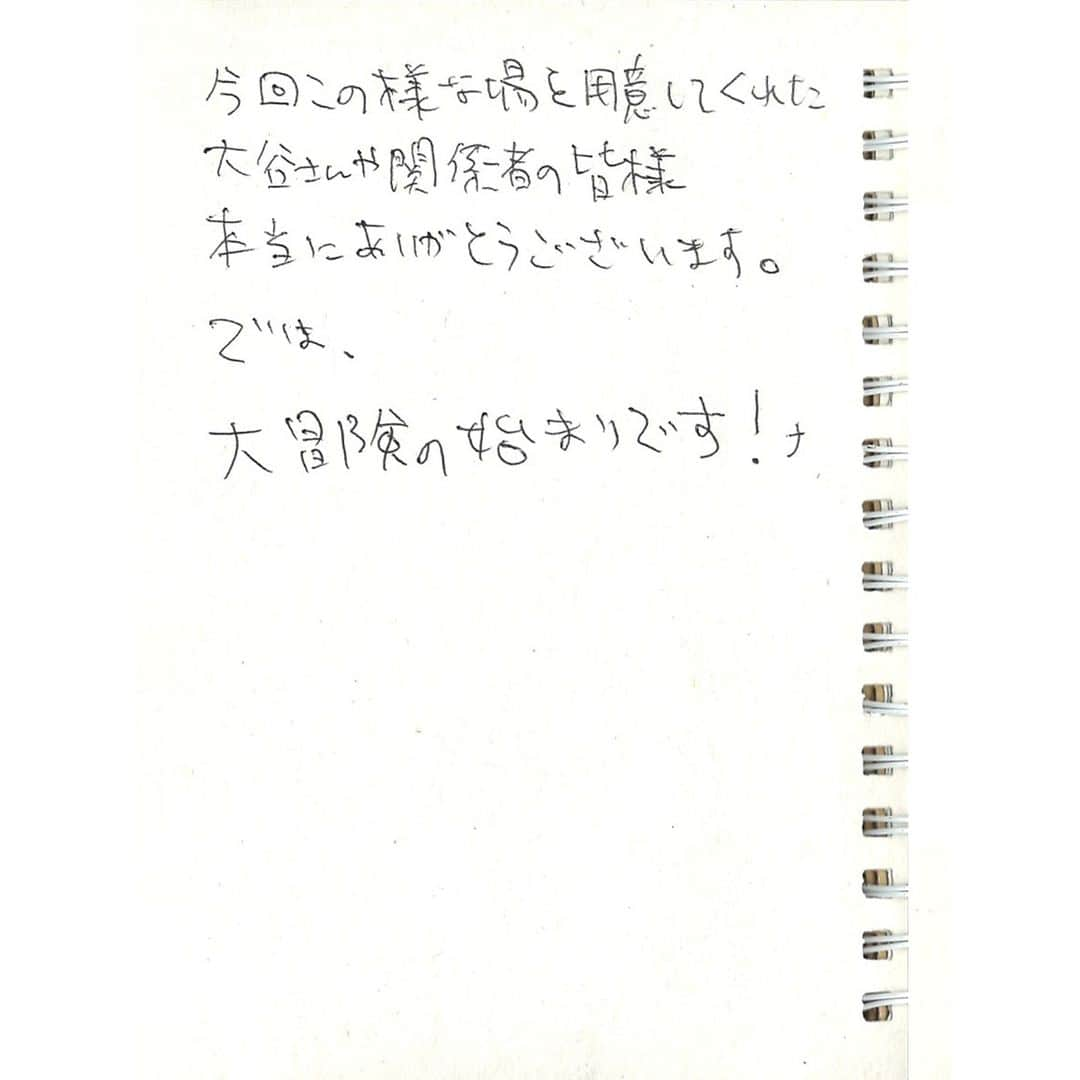 今回この様な場を用意してくれた
大谷さんや関係者の皆様
本当にありがとうございます。
では、
大冒険の始まりです!ナ